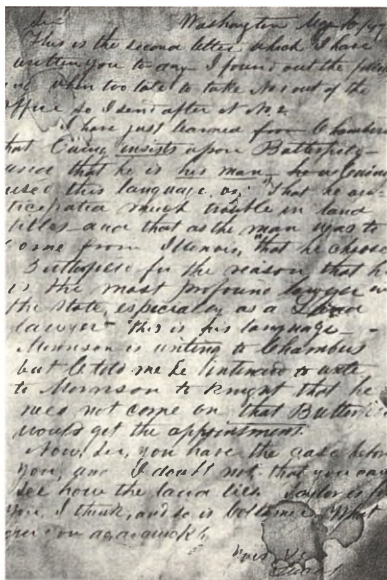 Sir Washington May 16/49
This is the second letter which I have
written you to day. I found out the
when too late to take No 1 out of the
office so I sent after it No 2
I have just learned from Chambers
that Ewing insists upon Butterfield
and that he is his man - has Ewing
used this language, viz; "That he an=
ticipated much trouble in land
titles - and that as the man was to
come from Illinois, that he choose
Butterfield for the reason that he
is the most profound lawyer in
the State, especially as a Land
lawyer" this is his language -
Morrison is writing to Chambers
but C told me he intended to write
to Morrison to knight that he
need not come on that Butterfield
would get the appointment.
Now, Sir, you have the case before
you, and I doubt not that you can
see how the land lies. Taylor is for
you, I think, and so is
come on again quick!
Yours &c